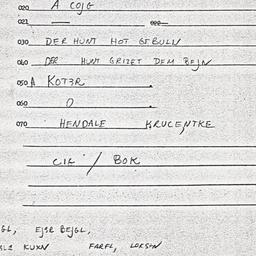 020 A COJG
021 —
030 DER HUNT HOT GEBULN
040 DER HUNT GRIZET DEM BEJN
050 A KOTER
060 O
070 HENDALE KRUCENTKE
CIG / BOK
GL, EJER BEJGL,
KUXN FARFL, LOKSN